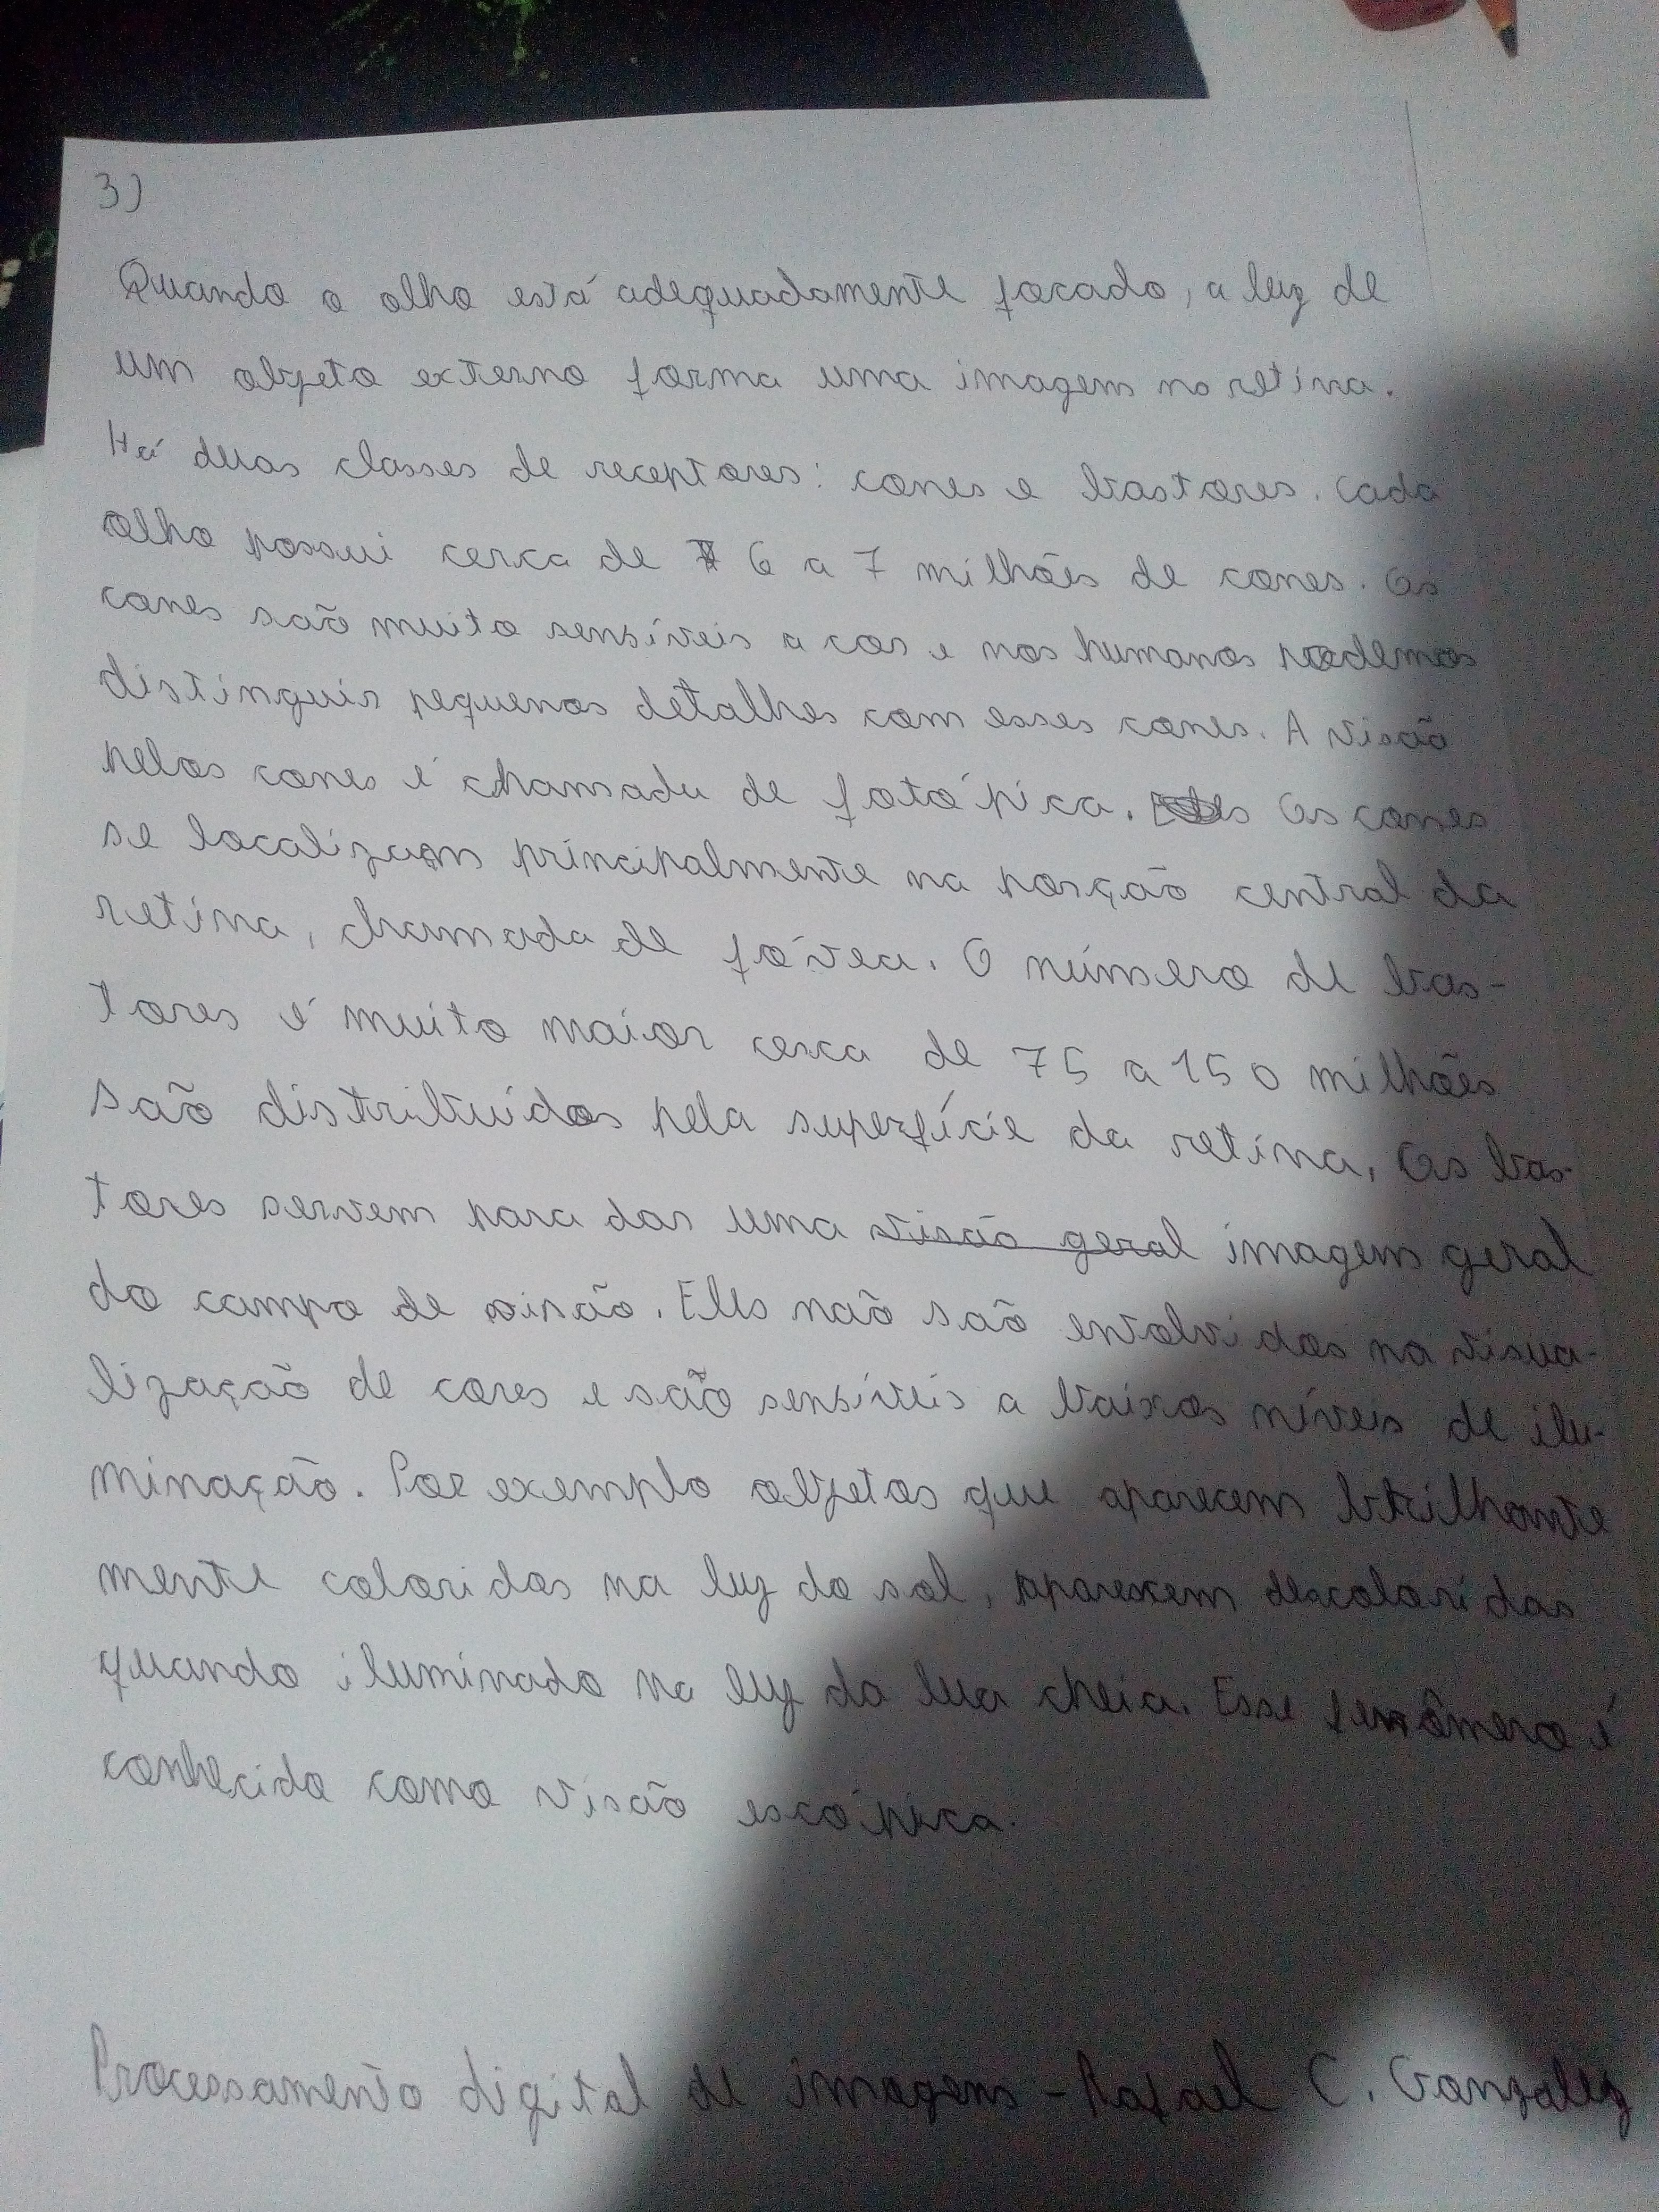 3)
Quando o olho está adequadamente focado, a luz de
um objeto externo forma uma imagem na retina.
Há duas classes de receptores: cones e bastores. Cada
olho possui cerca de 6 a 7 milhões de cones. Os
cones são muito sensíveis a cor e nos humanos podemos
distinguir pequenos detalhes com esses cones. A visão
pelos cones é chamada de fotópica. Os cones
se localizam principalmente na porção central da
retina, chamada de fóvea. O número de bas-
tores é muito maior cerca de 75 a 150 milhões
são distribuidos pela superfície da retina. Os bas-
tores servem para dar uma visão geral imagem geral
do campo de visão. Eles não são envolvidos na visua-
lização de cores e são sensíveis a baixos níveis de ilu-
minação. Por exemplo objetos que aparecem brilhante
mente coloridos na luz do sol, aparecem descoloridos
quando iluminado na luz da lua cheia. Esse fenômeno é
conhecido como visão escópica.
Processamento digital de imagens - Rafael C. Gonzalez